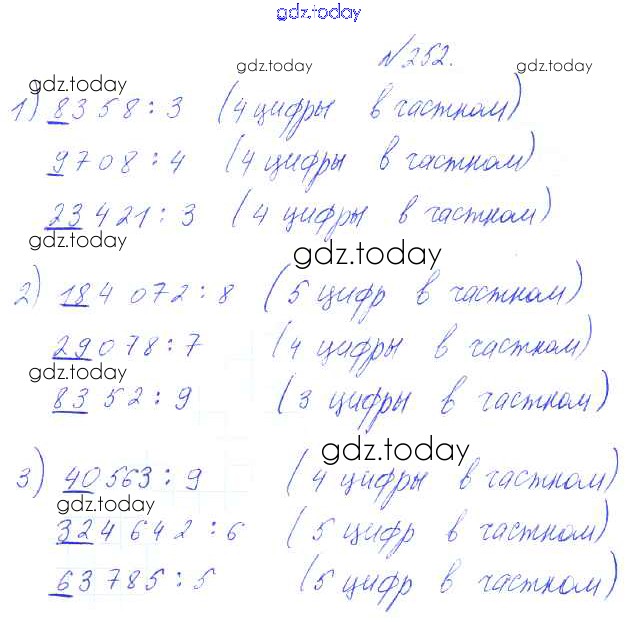 gdz.today
№252.
gdz.today gdz.today gdz.today
1) 8358 : 3 (4 цифры в частном)
9708 : 4 (4 цифры в частном)
23421 : 3 (4 цифры в частном)
gdz.today
gdz.today
2) 184072 : 8 (5 цифр в частном)
29078 : 7 (4 цифры в частном)
gdz.today
8352 : 9 (3 цифры в частном)
gdz.today
3) 40563 : 9 (4 цифры в частном)
gdz.today
324642 : 6 (5 цифр в частном)
63785 : 5 (5 цифр в частном)